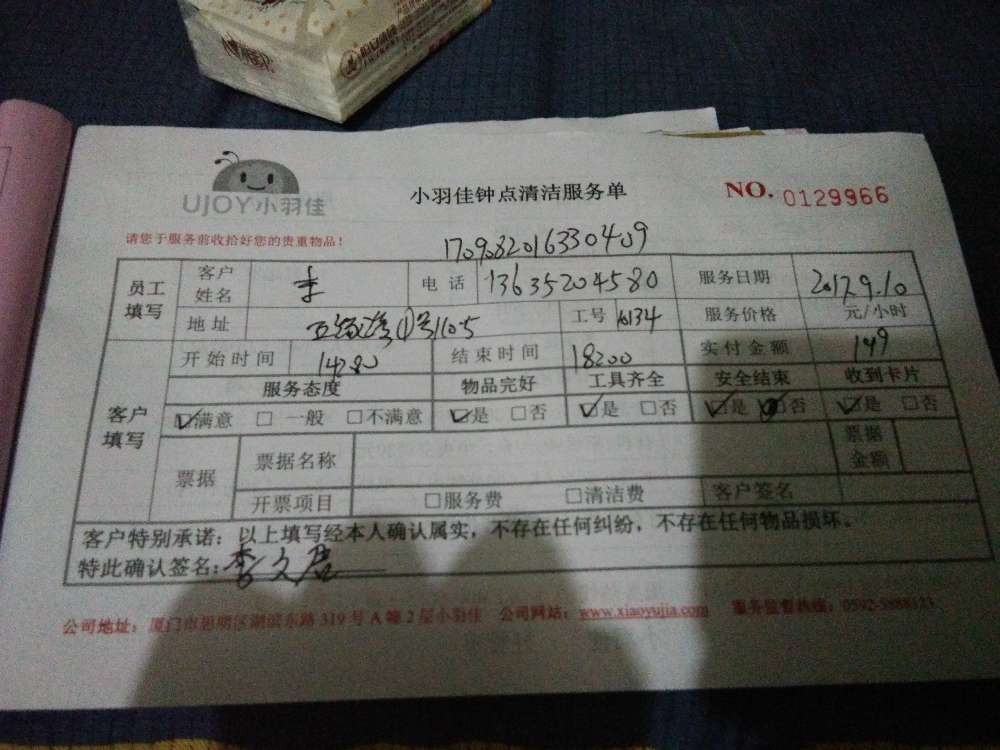 UJOY小羽佳
小羽佳钟点清洁服务单
NO. 0129966
请您于服务前收拾好您的贵重物品！
1709082016330409
员工填写 客户姓名 李 电话 13635204580 服务日期 2017.9.10
地址 号1105 工号 服务价格 元/小时
客户填写 开始时间 结束时间 实付金额 149
服务态度 物品完好 工具齐全 安全结束 收到卡片
☑满意 □ 一般 □不满意 ☑是 □否 ☑是 □否 ☑是 否 ☑是 □否
票据 票据名称 票据金额
开票项目 □服务费 □清洁费 客户签名
客户特别承诺：以上填写经本人确认属实，不存在任何纠纷，不存在任何物品损坏。
特此确认签名：李文
公司地址：厦门市思明区湖滨东路319号A幢2层小羽佳 公司网站：www.xiaoyujia.com 服务监督热线：0592-5888123